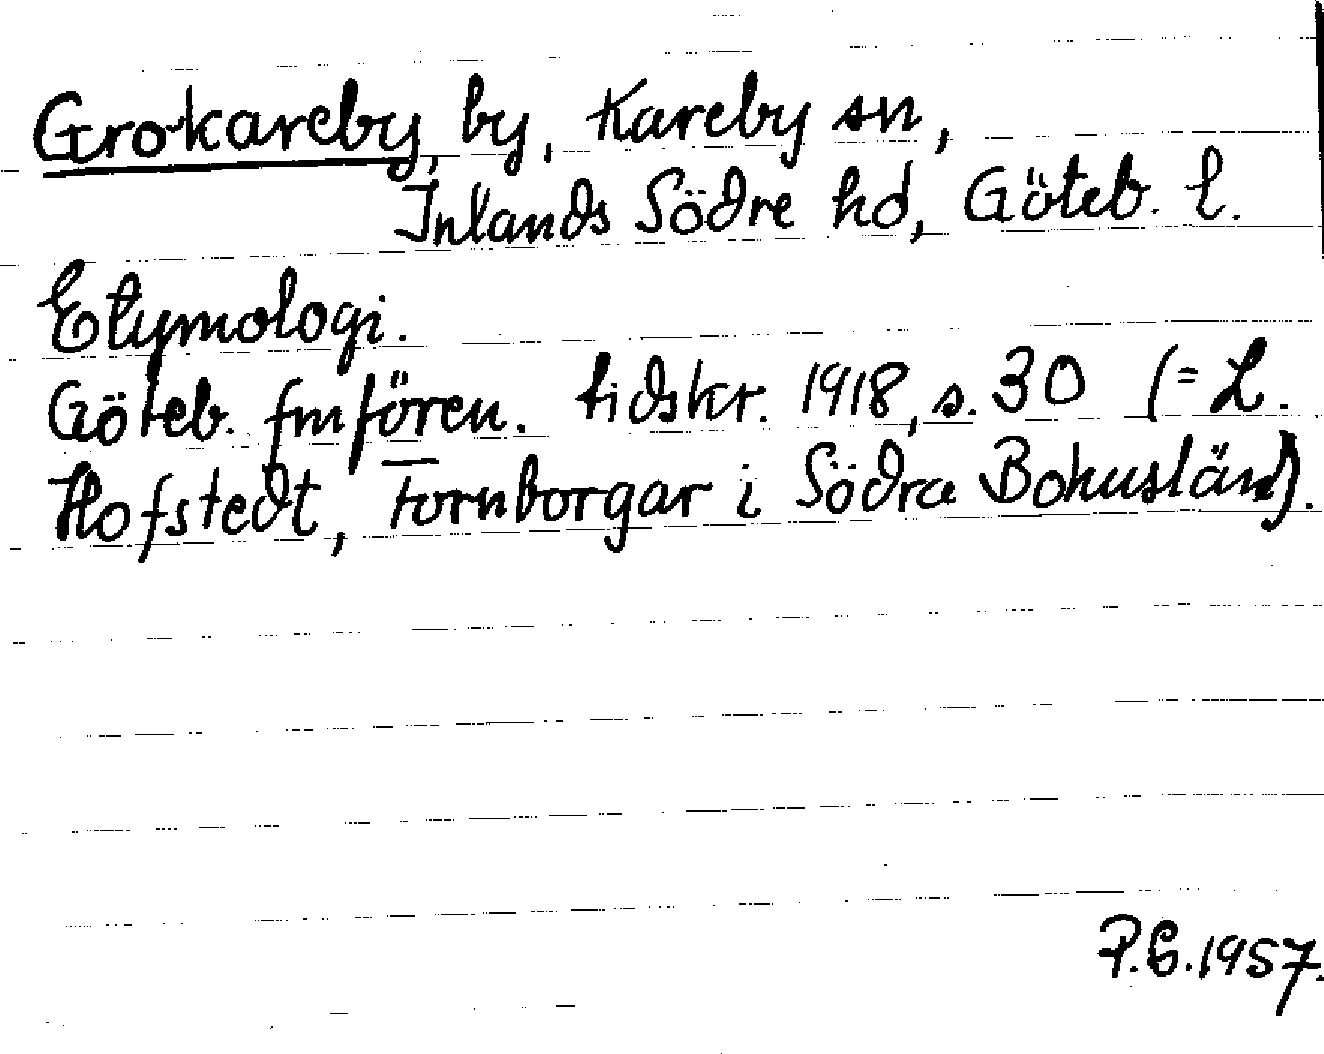 Grokareby, by, Kareby sn,
Inlands Södre hd, Göteb. l.
Etymologi.
Göteb. fmfören. tidskr. 1918, s. 30 (= L.
Hofstedt, Fornborgar i Södra Bohuslän).
P.G. 1957.